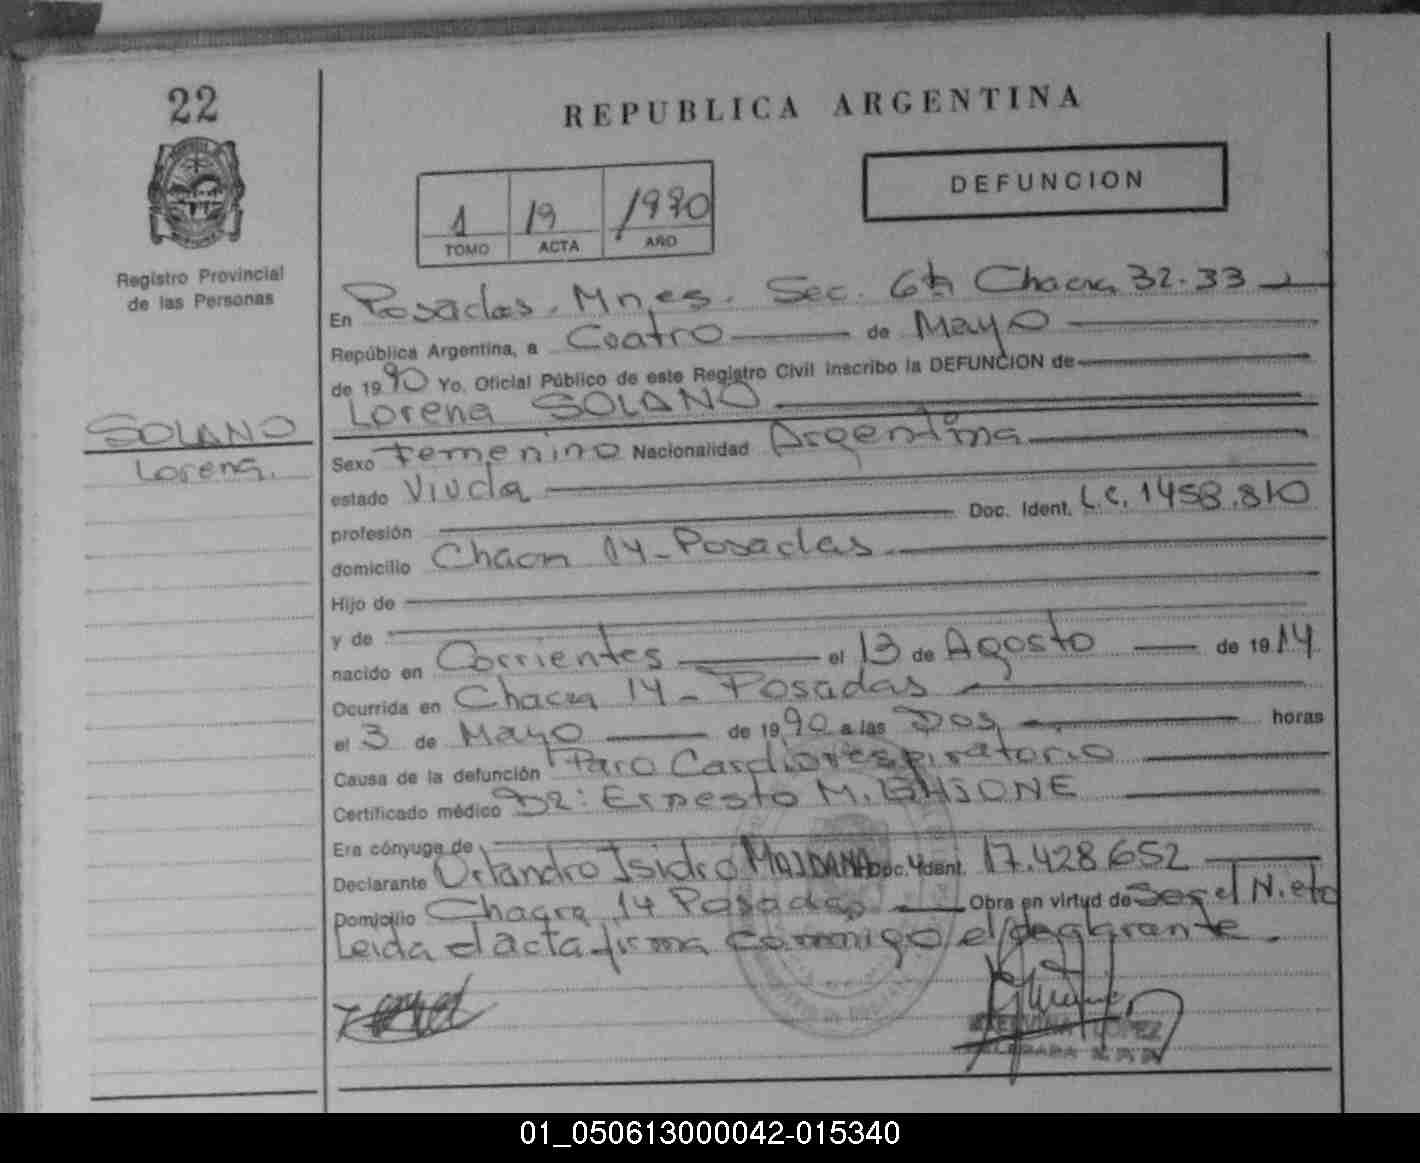 22
REPUBLICA ARGENTINA
DEFUNCION
1 19 1990
TOMO ACTA AÑO
Registro Provincial
de las Personas
SOLANO
Lorena.
En Posadas. Mnes. Sec. 6ta Chacra 32-33
República Argentina, a Cuatro de Mayo
de 1990 Yo, Oficial Público de este Registro Civil inscribo la DEFUNCION de
Lorena SOLANO
Sexo Femenino Nacionalidad Argentina
estado Viuda
profesión Doc. Ident. L.C. 1458.810
domicilio Chacra 14 - Posadas
Hijo de
y de
nacido en Corrientes el 13 de Agosto de 1914
Ocurrida en Chacra 14 - Posadas
el 3 de Mayo de 1990 a las Dos horas
Causa de la defunción Paro Cardiorespiratorio
Certificado médico Dr: Ernesto M.
Era cónyuge de
Declarante Orlandro Isidro MAIDANA Doc. Ident. 17.428.652
Domicilio Chacra 14 Posadas Obra en virtud de Ser el Nieto
Leida el acta firma conmigo el declarante.
LOPEZ
01_050613000042-015340